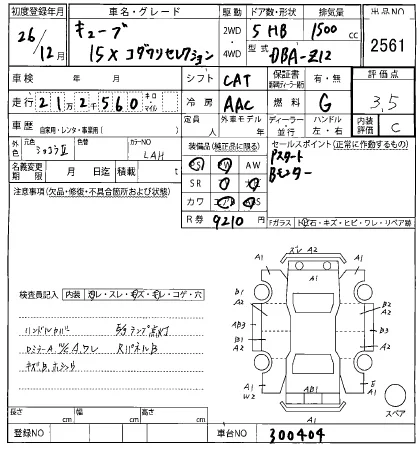 初度登録年月 車名・グレード 駆動 ドア数・形状 排気量 出品NO
26/12月 キューブ 2WD・4WD 5 HB 1500cc 2561
15X コダワリセレクション 型式 DBA-Z12
車検 年 月 シフト CAT 保証書 有・無 評価点
走行 212560 キロ・マイル 冷房 AAC 燃料 G 3.5
車歴 自家用・レンタ・事業用( ) 定員 人 外車モデル 年 ディーラー 並行 ハンドル 左・右 内装評価 C
外色 元色 ショコラⅡ 色替 カラーNO LAH
装備品(純正品に限る) セールスポイント(正常に作動するもの)
名義変更期限 月 日迄 積載 t
PS PW AW Pスタート
SR Bモニター
注意事項(欠品・修復・不具合箇所および状態)
カワ
R券 9210円 Fガラス 飛石・キズ・ヒビ・ワレ・リペア跡
ズレ A2
A1 A2 A1
検査員記入 内装 ヨレ・スレ・キズ・キレ・コゲ・穴
B1 B2
A2 A2
ハンドルカバー
AB3 B3
A2 A2
RパネルB
A1 W2 AB1 E A1
A1
スペア
長さ cm 幅 cm 高さ cm
登録NO 車台NO 300404